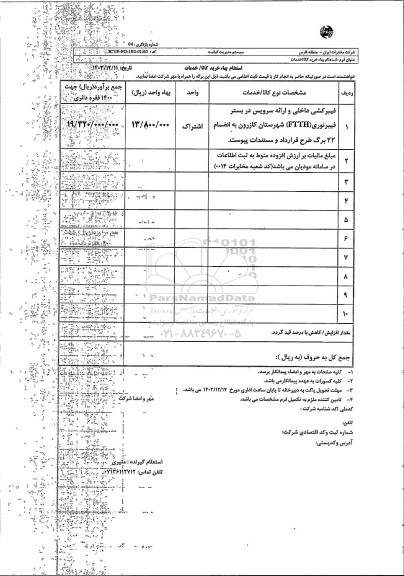 شماره بازنگری: 04
شرکت مخابرات ایران - منطقه فارس
سیستم مدیریت کیفیت
عنوان فرم: استعلام بهاء خرید کالا/خدمات
استعلام بهاء خرید کالا / خدمات
تاریخ: ۱۴۰۳/۱۲/۱۱
خواهشمند است در صورتیکه حاضر به انجام کار با قیمت ثابت اعلامی می باشید ذیل این برگه را همراه با مهر شرکت امضا نمایید.
ردیف
مشخصات نوع کالا/خدمات
واحد
بهاء واحد (ریال)
جمع برآورد(ریال) جهت ۱۴۰۰ فقره دائری
۱
فیبرکشی داخلی و ارائه سرویس در بستر
فیبرنوری(FTTH) شهرستان کازرون به انضمام
۲۲ برگ طرح قرارداد و مستندات پیوست.
اشتراک
۱۳/۸۰۰/۰۰۰
۱۹/۳۲۰/۰۰۰/۰۰۰
۲
مبلغ مالیات بر ارزش افزوده منوط به ثبت اطلاعات
در سامانه مودیان می باشد(کد شعبه مخابرات ۰۰۱۴)
۳
۴
۵
۶
۷
۸
۹
۱۰
ParsNamadData
۰۲۱-۸۸۳۴۹۶۷۰-۵
مقدار افزایش/ کاهش با درصد قید گردد.
جمع کل به حروف (به ریال):
۱- کلیه صفحات به مهر و امضاء پیمانکار برسد.
۲- کلیه کسورات به عهده پیمانکار می باشد.
۳- مهلت تحویل پاکت به دبیرخانه تا پایان ساعت اداری مورخ ۱۴۰۳/۱۲/۱۴ می باشد.
۴- تامین کننده ملزم به تکمیل فرم مشخصات می باشد.
مهر و امضا شرکت
کدملی /کد شناسه شرکت:
تلفن:
شماره ثبت وکد اقتصادی شرکت:
آدرس وکدپستی:
استعلام گیرنده : منیری
تلفن تماس: ۰۷۱۳۶۱۱۲۷۱۲